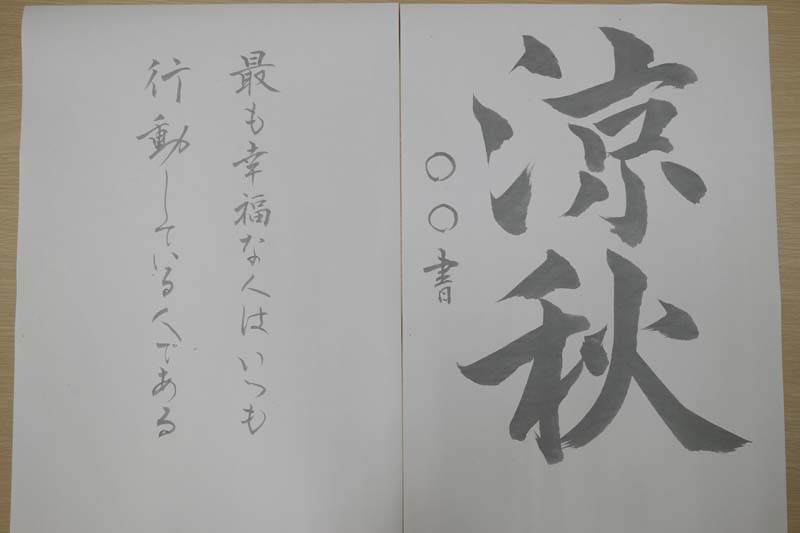 涼秋
〇〇書
最も幸福な人はいつも
行動している人である